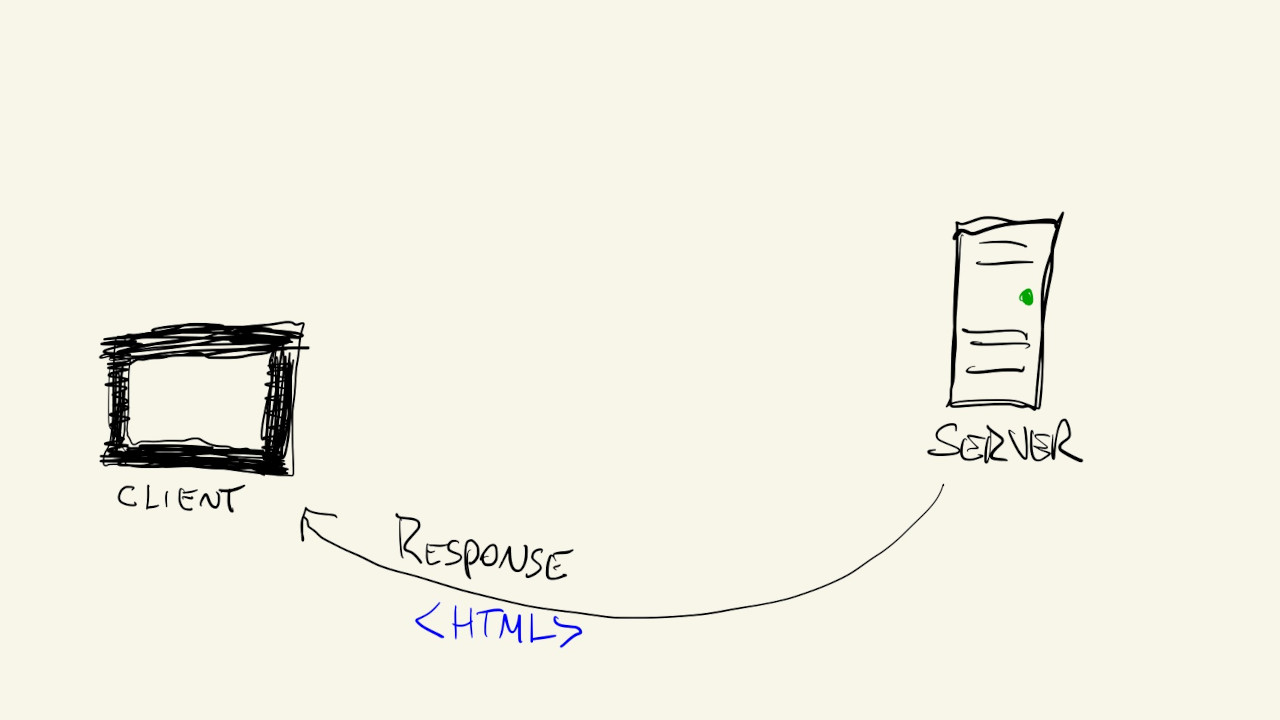 SERVER
CLIENT
RESPONSE
<HTML>